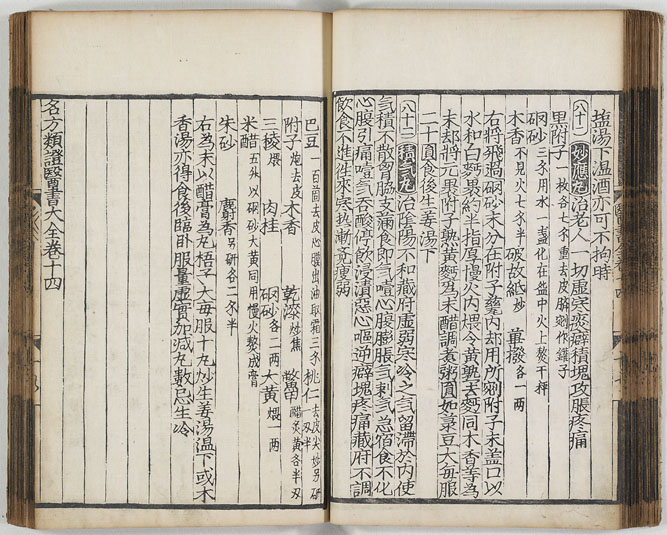 塩湯下温酒亦可不拘時
八十一 妙應丸 治老人一切虚寒痰癖積塊攻脹疼痛
黒附子 一枚各七錢重去皮臍剜作鑵子
硇砂 三錢用水一盞化在盤中火上熬干秤
木香 不見火七錢半 破故紙 炒 蓽撥 各一兩
右將飛過硇砂末分在附子甕内却用所剜附子末盖口以
水和白麪裹約半指厚慢火内煨令黄熟去麪同木香等為
末却將元裹附子熟黄麪為末醋調煮粥圓如菉豆大毎服
二十圓食後生姜湯下
八十二 積氣丸 治陰陽不和藏府虚弱寒冷之氣留滯於内使
氣積不散胷脇支滿食即氣噎心腹膨脹氣剌氣急宿食不化
心腹引痛噫氣吞酸停飲浸漬惡心嘔逆癖塊疼痛藏府不調
飲食不進徃來寒熱漸覺瘦弱
巴豆 一百箇去皮心膜出油取霜三錢 桃仁 去皮尖炒另研 半
附子 炮去皮 木香 乾漆 炒焦 鱉甲 醋炙黄各半兩
三稜 煨 肉桂 硇砂 各二兩 大黄 煨一兩
米醋 五升以硇砂大黄同用慢火熬成膏
朱砂 麝香 另研各二錢半
右為末以醋膏為丸梧子大毎服十丸炒生姜湯温下或木
香湯亦得食後臨卧服量虚實加减丸數忌生冷
名方類證醫書大全巻十四